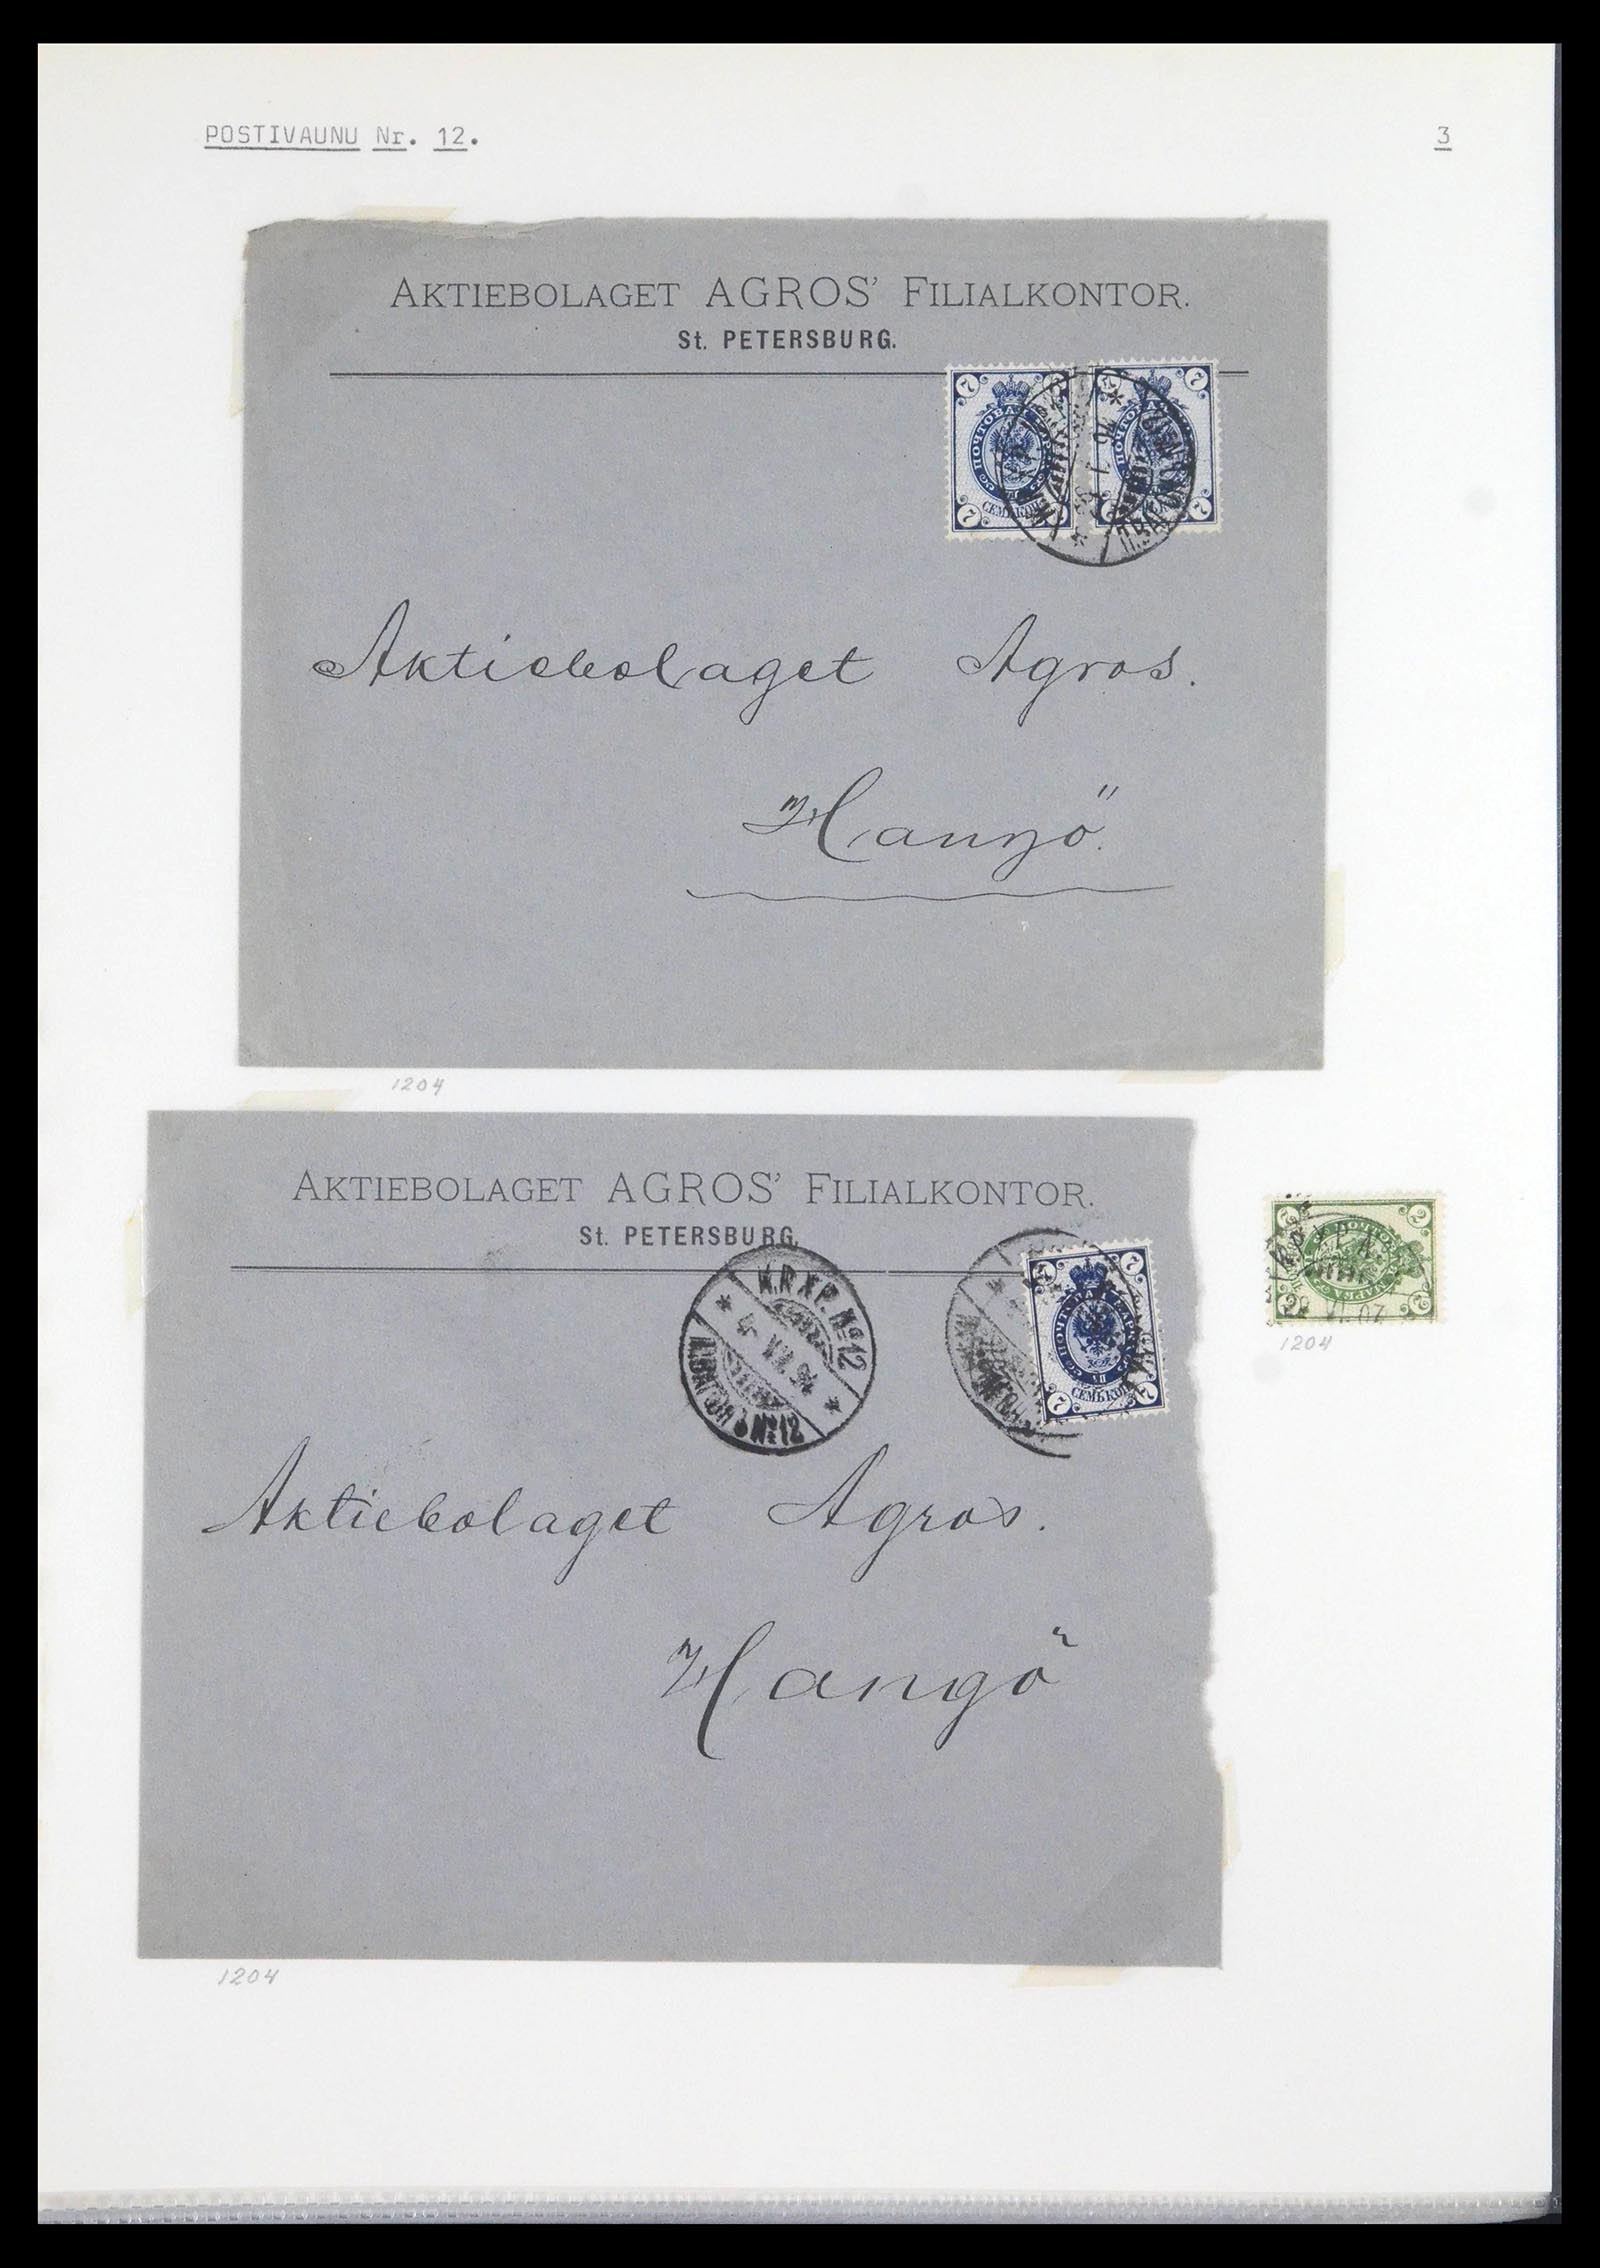 POSTIVAUNU Nr. 12.
3
AKTIEBOLAGET AGROS' FILIALKONTOR.
St. PETERSBURG.
7 7
7 7
ПОЧТОВАЯ
7 7
Aktiebolaget Agros.
Hangö.
1204
AKTIEBOLAGET AGROS' FILIALKONTOR.
St. PETERSBURG.
K.P.XP. No 12
No 12
7 7
СЕМЬ КОП
7 7
2 2
2 2
1204
Aktiebolaget Agros.
Hangö
1204